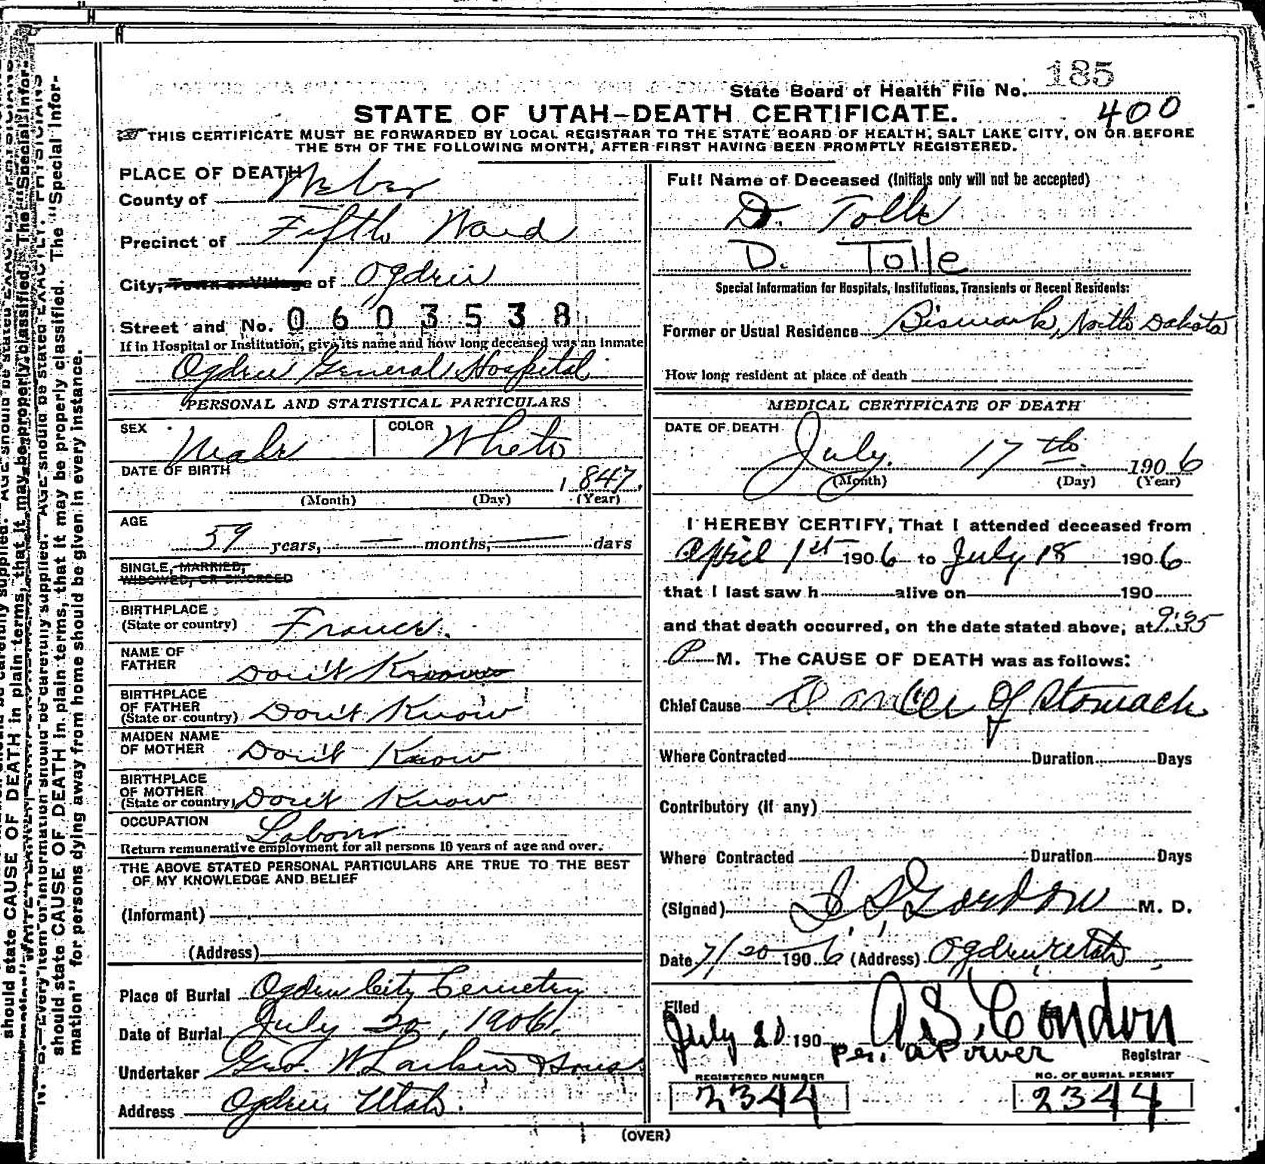 State Board of Health File No. 185
400
STATE OF UTAH-DEATH CERTIFICATE.
THIS CERTIFICATE MUST BE FORWARDED BY LOCAL REGISTRAR TO THE STATE BOARD OF HEALTH, SALT LAKE CITY, ON OR BEFORE
THE 5TH OF THE FOLLOWING MONTH, AFTER FIRST HAVING BEEN PROMPTLY REGISTERED.
PLACE OF DEATH
County of Weber
Precinct of Fifth Ward
City, Town or Village of Ogden
Street and No. 0603538
If in Hospital or Institution, give its name and how long deceased was an inmate
Ogden General Hospital
PERSONAL AND STATISTICAL PARTICULARS
SEX Male COLOR White
DATE OF BIRTH
1847.
(Month) (Day) (Year)
AGE
59 years, — months, — days
SINGLE, MARRIED,
WIDOWED, OR DIVORCED
BIRTHPLACE
(State or country) France.
NAME OF
FATHER Don't Know
BIRTHPLACE
OF FATHER
(State or country) Don't Know
MAIDEN NAME
OF MOTHER Don't Know
BIRTHPLACE
OF MOTHER
(State or country) Don't Know
OCCUPATION
Laborer
Return remunerative employment for all persons 10 years of age and over.
THE ABOVE STATED PERSONAL PARTICULARS ARE TRUE TO THE BEST
OF MY KNOWLEDGE AND BELIEF
(Informant)
(Address)
Place of Burial Ogden City Cemetery
Date of Burial July 20, 1906.
Undertaker Geo. W Larkin & Sons
Address Ogden Utah.
Full Name of Deceased (Initials only will not be accepted)
D. Tolle
D. Tolle
Special Information for Hospitals, Institutions, Transients or Recent Residents:
Former or Usual Residence Bismark, North Dakota
How long resident at place of death
MEDICAL CERTIFICATE OF DEATH
DATE OF DEATH
July. 17th 1906
(Month) (Day) (Year)
I HEREBY CERTIFY, That I attended deceased from
April 1st 1906 to July 18 1906
that I last saw h alive on 190
and that death occurred, on the date stated above, at 9:35
P M. The CAUSE OF DEATH was as follows:
Chief Cause Cancer of Stomach
Where Contracted Duration Days
Contributory (if any)
Where Contracted Duration Days
(Signed) Gordon M. D.
Date 7/20 1906 (Address) Ogden Utah
Filed
July 20 190 A. S. Condon
per. a Power Registrar
REGISTERED NUMBER
2344
NO. OF BURIAL PERMIT
2344
(OVER)
should state CAUSE OF DEATH in plain terms, that it may be properly classified. The "Special Infor-
mation" for persons dying away from home should be given in every instance.